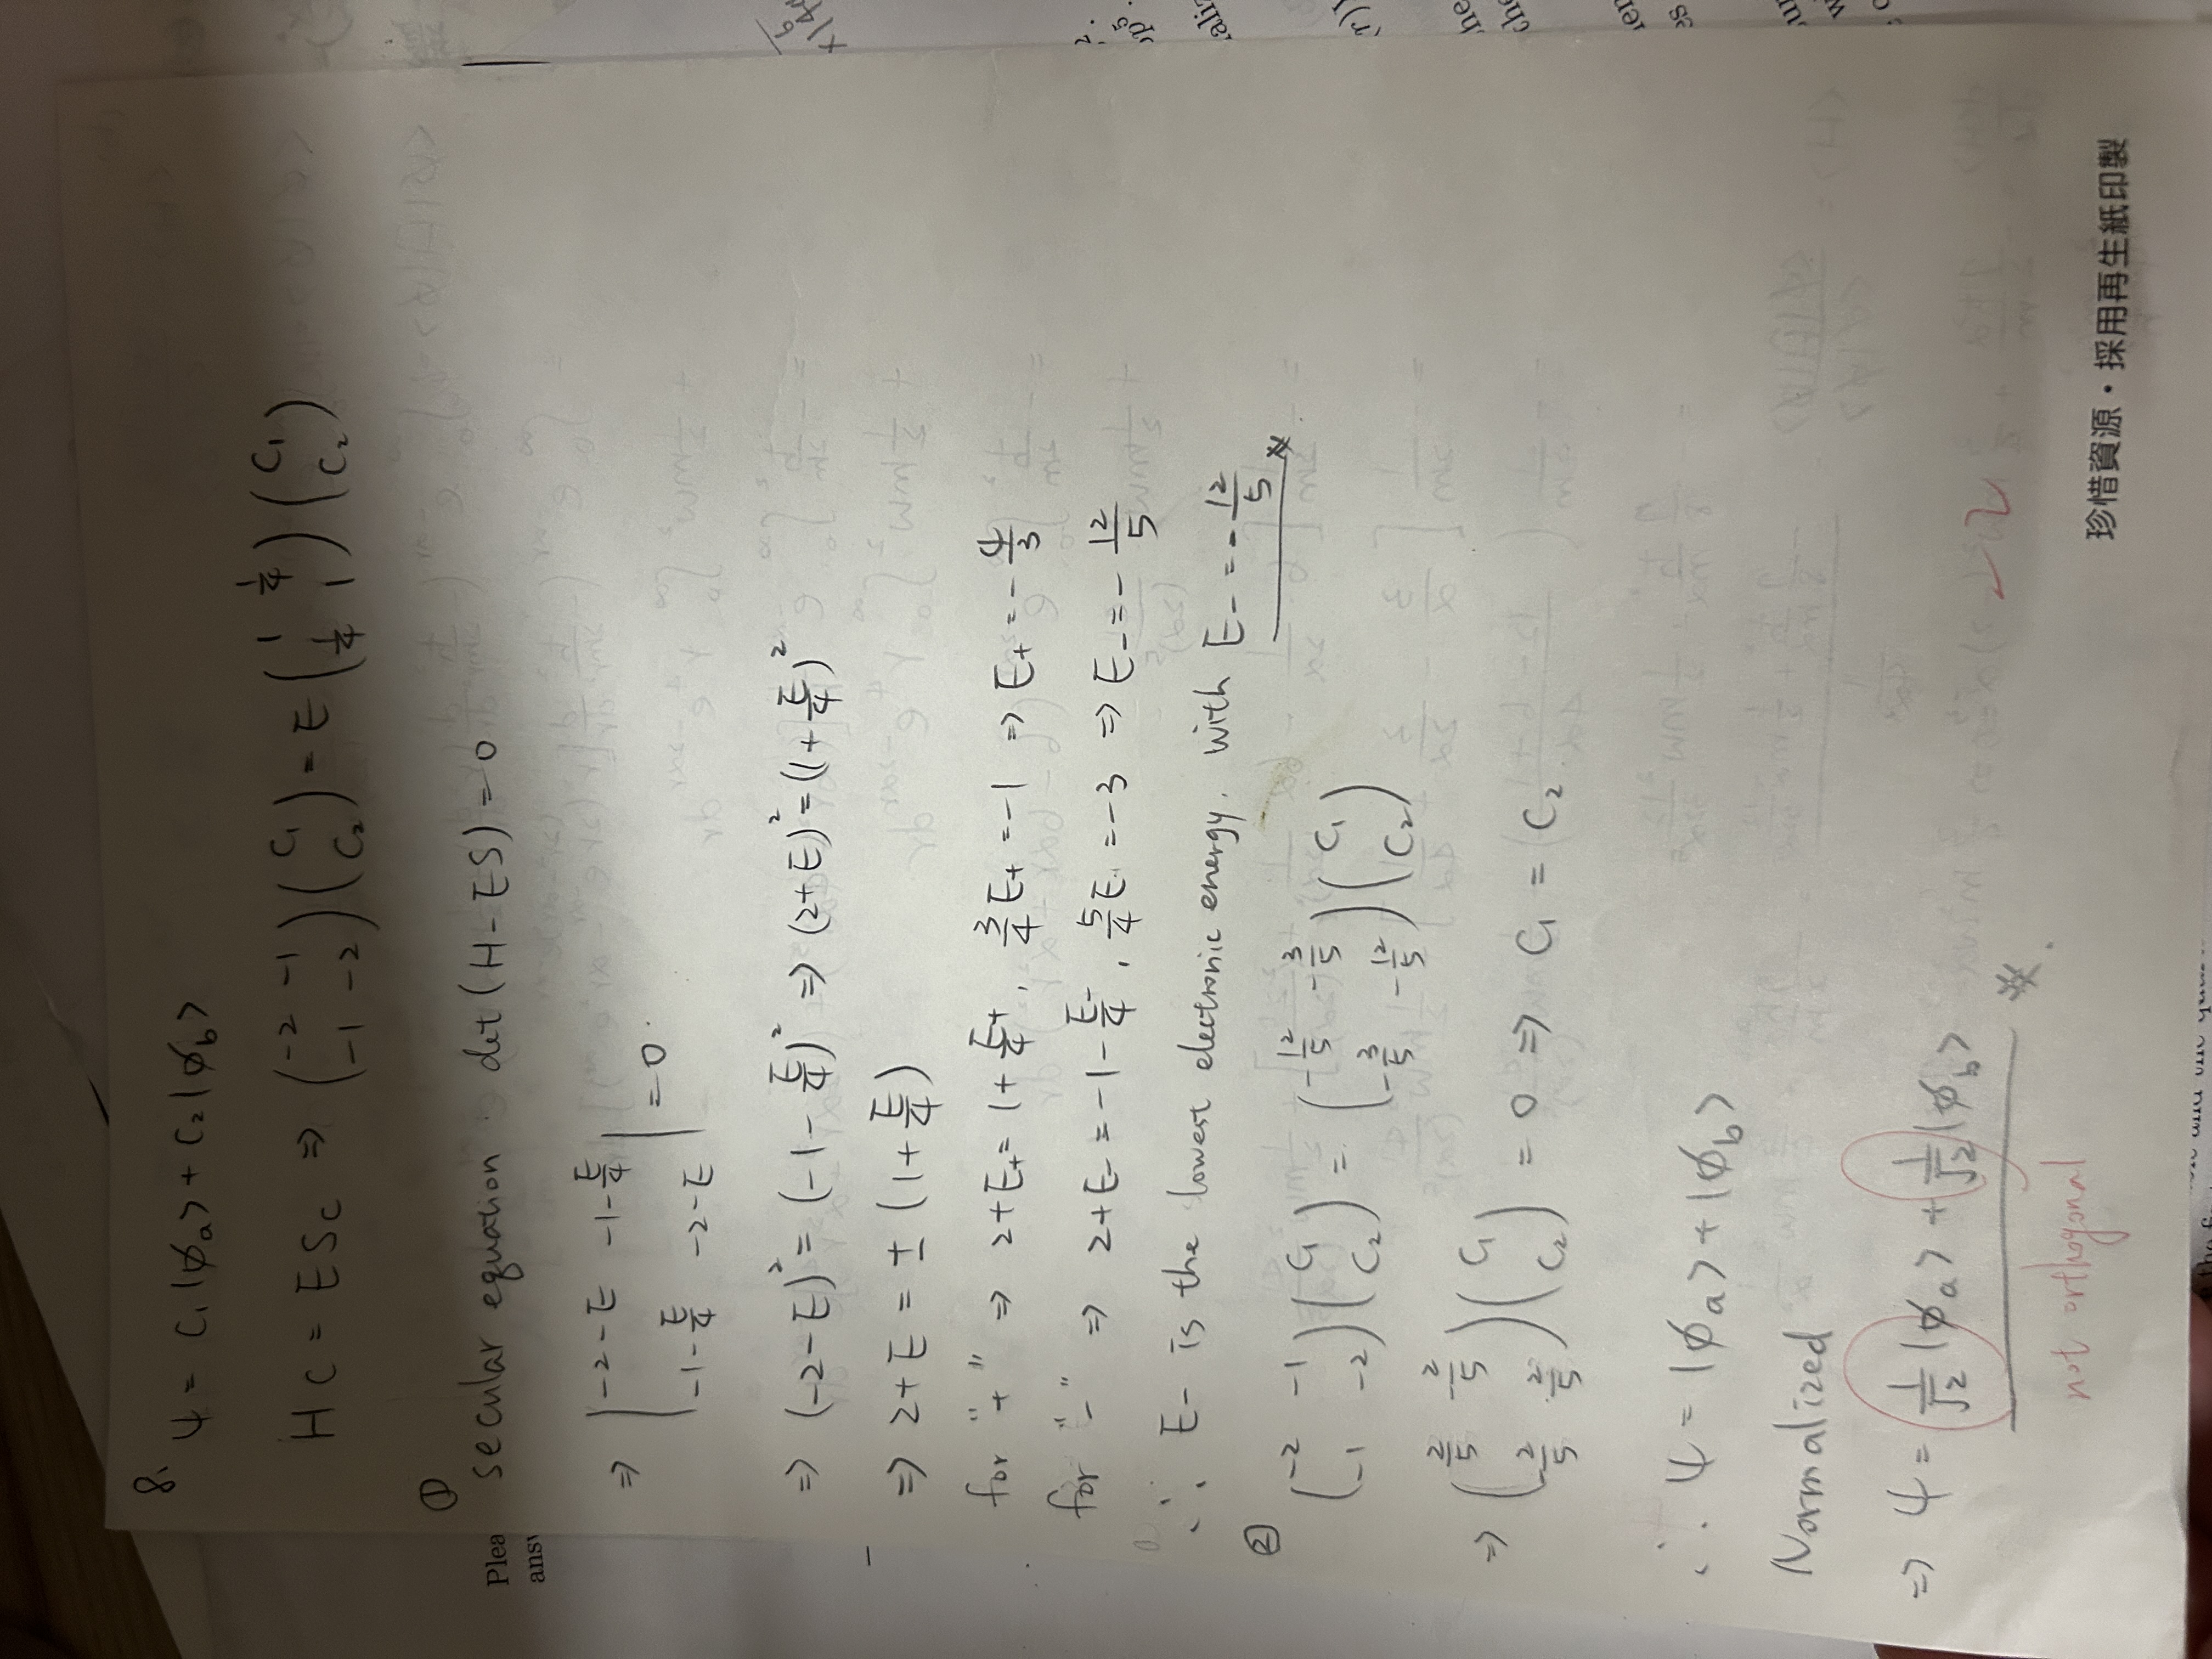 8.
ψ = C₁|ϕₐ> + C₂|ϕ_b>
HC = ESc ⇒ (-2 -1; -1 -2)(C₁; C₂) = E(1 1/4; 1/4 1)(C₁; C₂)
①
secular equation . det(H-ES) = 0
⇒ |-2-E -1-E/4; -1-E/4 -2-E| = 0.
⇒ (-2-E)² = (-1-E/4)² ⇒ (2+E)² = (1+E/4)²
⇒ 2+E = ± (1+E/4)
for "+" ⇒ 2+E₊ = 1+E₊/4, 3/4 E₊ = -1 ⇒ E₊ = -4/3
for "-" ⇒ 2+E₋ = -1-E₋/4, 5/4 E₋ = -3 ⇒ E₋ = -12/5
∴ E₋ is the lowest electronic energy. with E₋ = -12/5 ※
②
(-2 -1; -1 -2)(C₁; C₂) = (-12/5 -3/5; -3/5 -12/5)(C₁; C₂)
⇒ (2/5 -2/5; -2/5 2/5)(C₁; C₂) = 0 ⇒ C₁ = C₂
∴ ψ = |ϕₐ> + |ϕ_b>
Normalized
⇒ ψ = 1/√2 |ϕₐ> + 1/√2 |ϕ_b> ※.
-2
not orthogonal
珍惜資源・採用再生紙印製
Plea